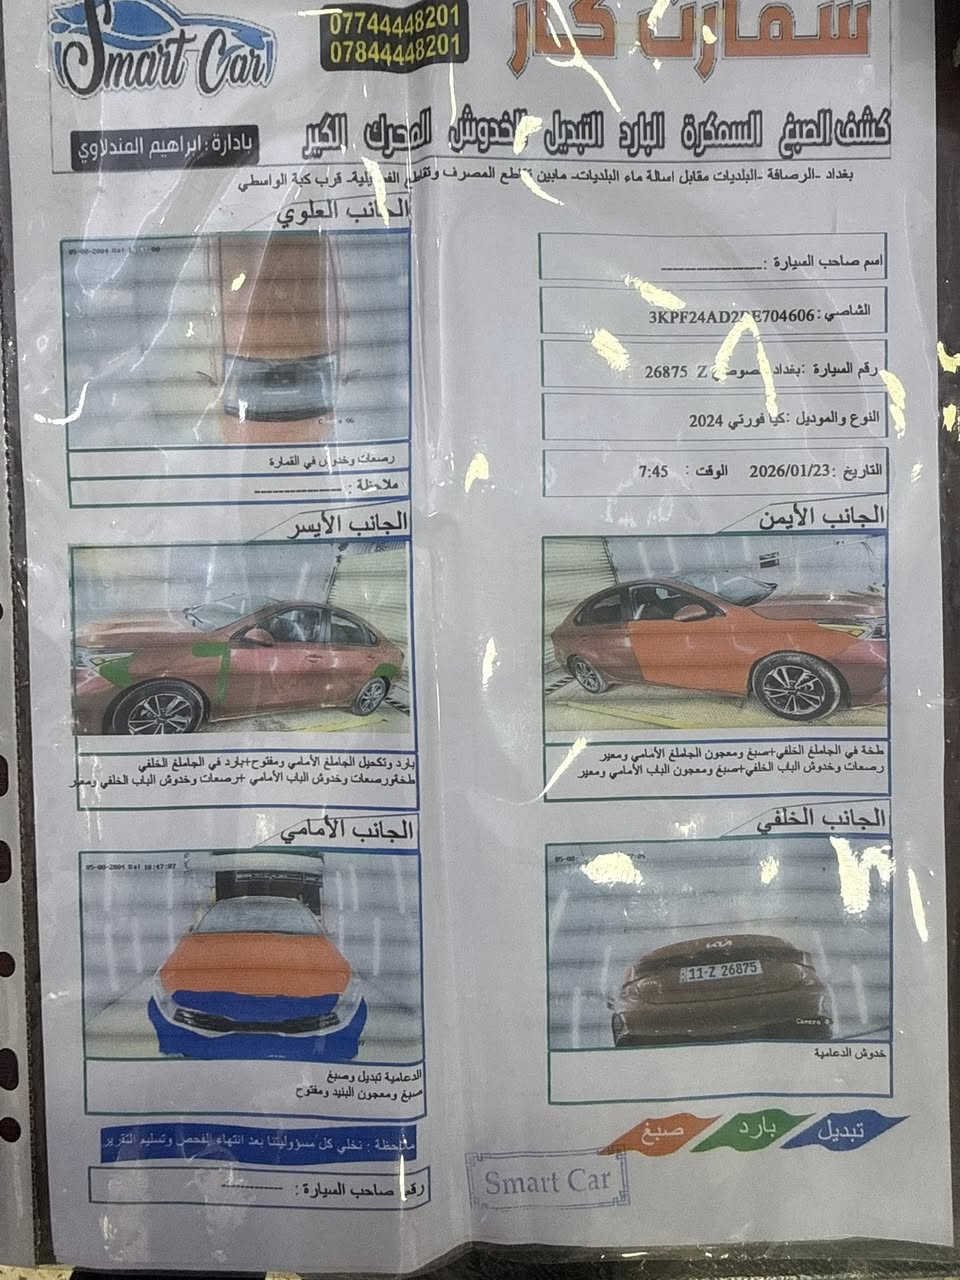 Smart Car
07744448201
07844448201
سمارت كار
كشف الصبغ السمكرة البارد التبديل الخدوش المحرك الكير
بادارة : ابراهيم المندلاوي
بغداد -الرصافة -البلديات مقابل اسالة ماء البلديات- مابين تقاطع المصرف وتقاطع - قرب كبة الواسطي
اسم صاحب السيارة :
الشاصي :3KPF24AD2 E704606
رقم السيارة :بغداد 26875 Z
النوع والموديل :كيا فورتي 2024
التاريخ :2026/01/23 الوقت : 7:45
الجانب العلوي
رصعات وخدوش في القمارة
ملاحظة :
الجانب الأيمن
طخة في الجاملغ الخلفي+صبغ ومعجون الجاملغ الأمامي ومعير
رصعات وخدوش الباب الخلفي+صبغ ومعجون الباب الأمامي ومعير
الجانب الأيسر
بارد وتكحيل الجاملغ الأمامي ومفتوح+بارد في الجاملغ الخلفي
طخة+رصعات وخدوش الباب الأمامي +رصعات وخدوش الباب الخلفي ومعير
الجانب الخلفي
11-Z 26875
خدوش الدعامية
الجانب الأمامي
الدعامية تبديل وصبغ
صبغ ومعجون البنيد ومفتوح
تبديل
بارد
صبغ
ملاحظة : نخلي كل مسؤوليتنا بعد انتهاء الفحص وتسليم التقرير
رقم صاحب السيارة :
Smart Car